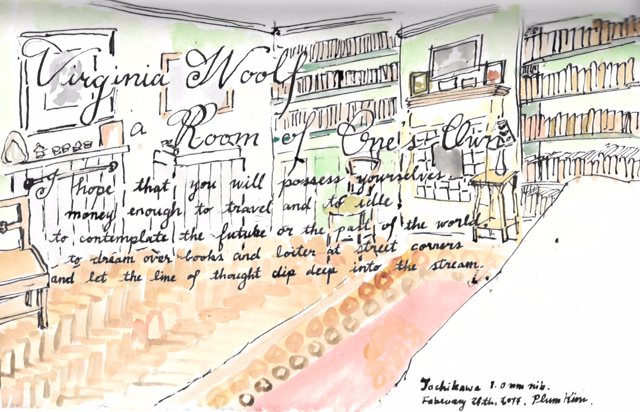 Virginia Woolf
a Room of One's Own
I hope that you will possess yourselves
money enough to travel and to idle,
to contemplate the future or the past of the world,
to dream over books and loiter at street corners
and let the line of thought dip deep into the stream.
Tachikawa 1.0 mm nib.
February 28th, 2017, Plum Kim.